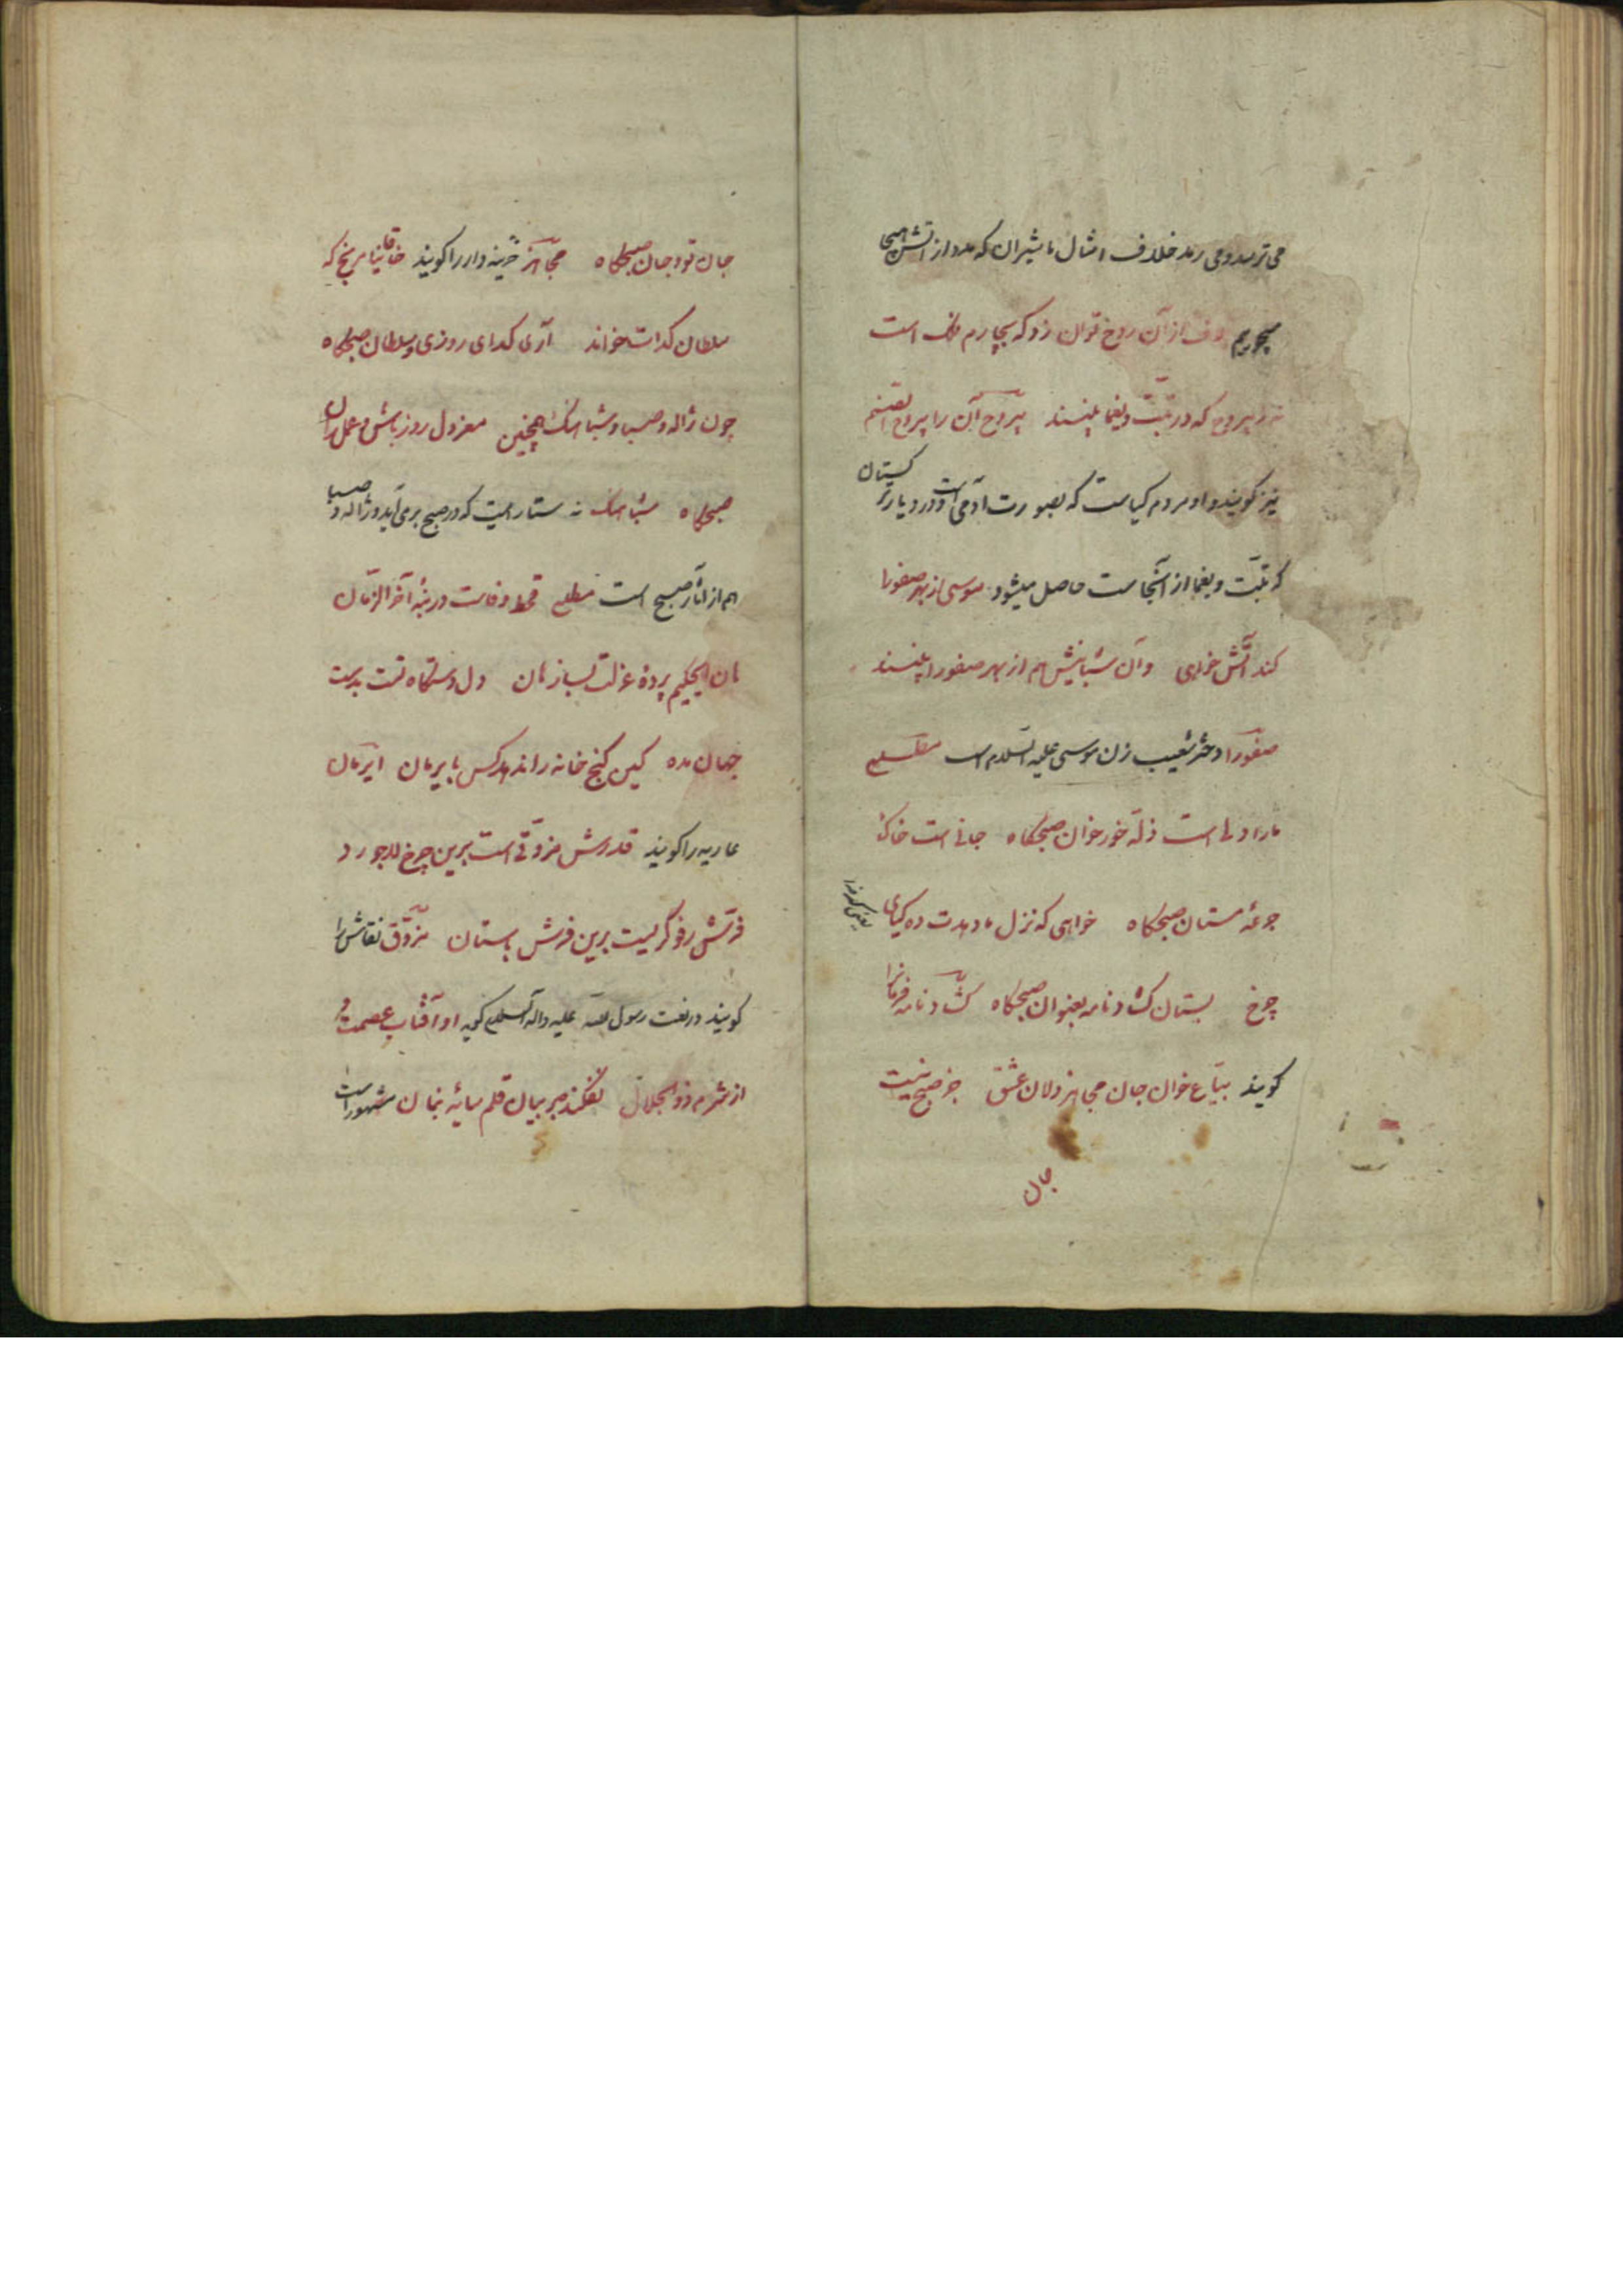 می ترسد و می رمد خلاف امثال ما شیران که
از آن روح توان زد که بچارم فلک است
که در تبت و یغما بینند یبروح آن را یبروح الصنم
نیز گویند و او مردم گیاست که بصورت آدمی است و در دیار ترکستان
که تبت و یغما از آنجاست حاصل میشود موسی از بهر صفورا
کند آتش خواهی وان شبانیش هم از بهر صفورا بینند
صفورا دختر شعیب زن موسی علیه السلام است مطلع
ما را دلی است زله خور خوان صبحگاه جانی است خاک
جرعه مستان صبحگاه خواهی که نزل ما دهدت ده کیای
چرخ بستان گشاد نامه بعنوان صبحگاه گشاد نامه فرمانرا
گویند بیاع خوان جان مجاهز دلان عشق جز صبح نیست
جان
جان تو و جان صبحگاه مجاهز خزینه دار را گویند خاقانیا مرنج که
سلطان گدات خواند آری گدای روزی و سلطان صبحگاه
چون ژاله و صبا و شباهنگ همچنین معزول روز باش و عمل ران
صبحگاه شباهنگ نه ستاره ایست که در صبح برمی آید و ژاله و صبا
هم از آثار صبح است مطلع قحط وفاست در بنه آخر الزمان
هان ای حکیم پرده عزلت بساز هان دل دستگاه تست بدست
جهان مده کین گنج خانه را ندهد کس بایرمان ایرمان
عاریه را گویند قدرش مزوقی است برین چرخ لاجورد
فرش رفوگریست برین فرش باستان مزوق نقاش را
گویند در نعت رسول الله علیه و آله السلام گوید او آفتاب عصمت و
از شرم ذوالجلال نفکند بر بیان قلم سایه بنان مشهور است